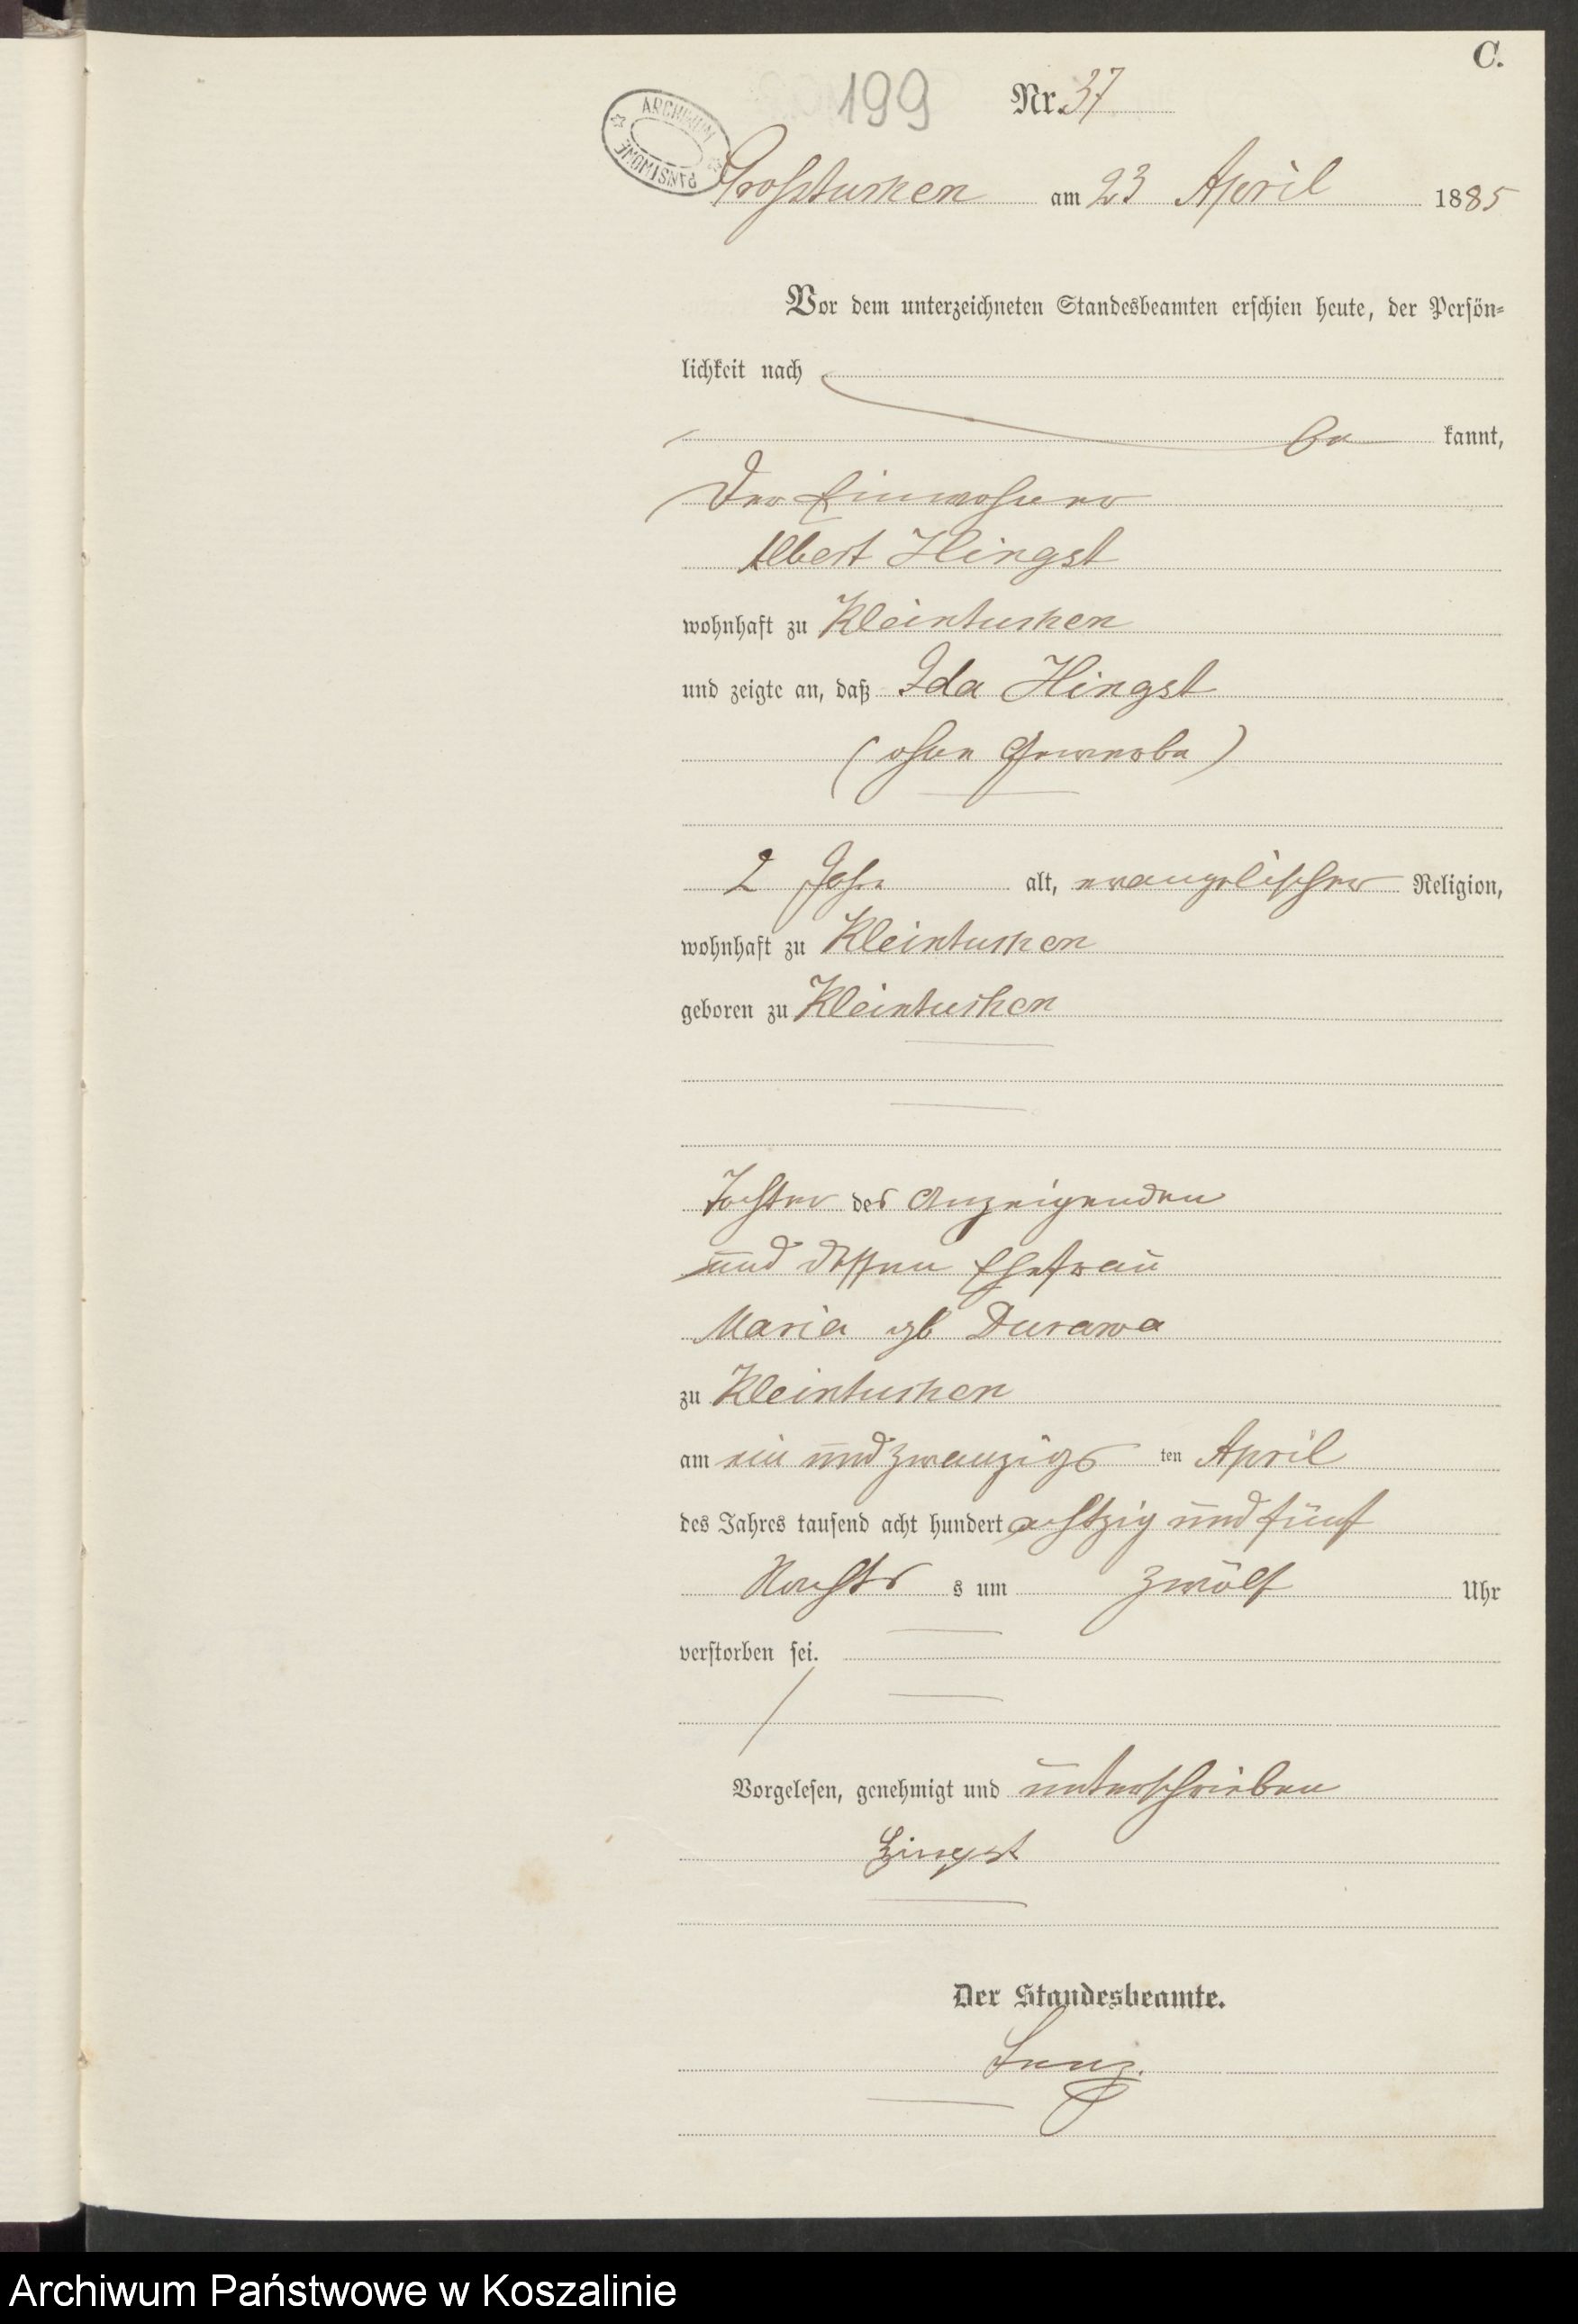 C.
199 Nr. 37
ARCHIWUM PAŃSTWOWE
Grosstuchen am 23 April 1885
Vor dem unterzeichneten Standesbeamten erschien heute, der Persön-
lichkeit nach
be kannt,
der Einwohner
Albert Hingst
wohnhaft zu Kleintuchen
und zeigte an, daß Ida Hingst
(ohne Gewerbe)
2 Jahr alt, evangelischer Religion,
wohnhaft zu Kleintuchen
geboren zu Kleintuchen
Tochter des Anzeigenden
und dessen Ehefrau
Maria gb Durawa
zu Kleintuchen
am ein und zwanzigs ten April
des Jahres tausend acht hundert achtzig und fünf
Nachts s um zwölf Uhr
verstorben sei.
Vorgelesen, genehmigt und unterschrieben
Hingst
Der Standesbeamte.
Archiwum Państwowe w Koszalinie